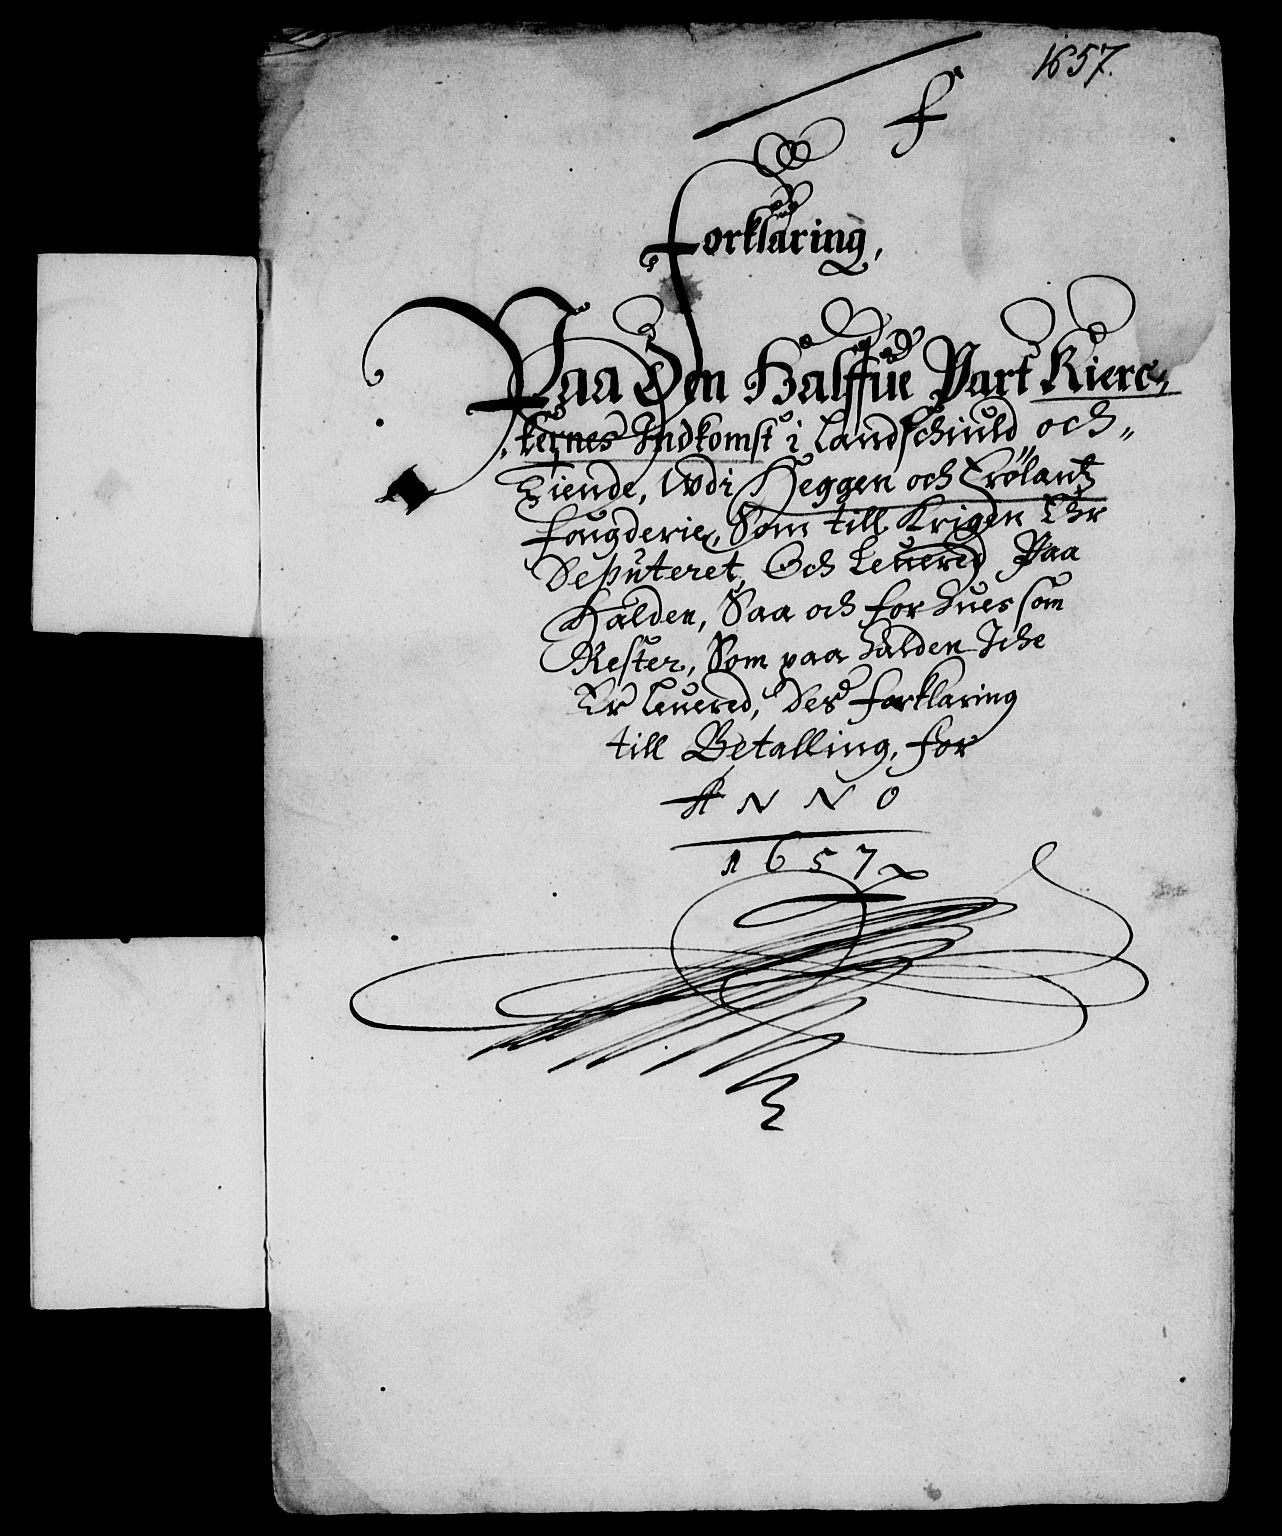 1657.
F
Forklaring,
Paa Den Halffue Part Kierc-
kernes Indkomst i Landschiuld och
Tiende, Wdi Heggen och Frölantz
fougderie, Som till Krigen Ehr
Deputeret, Och Leuered Paa
Halden, Saa och for hues som
Rester, Som paa halden Iche
Er leuered, Des forklaring
till Betalling, for
ANNO
1657